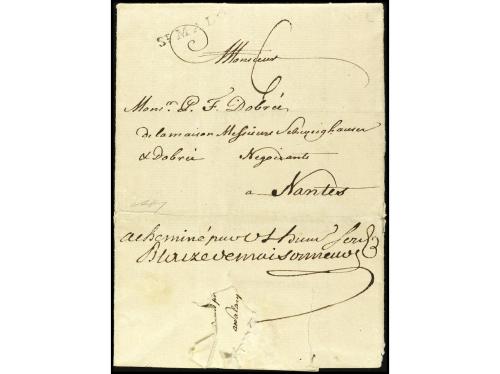 St MALO
Monsieur
Monsr. P. F. Dobrée
de la maison Messieurs Schweighauser
& Dobrée Negociants
a Nantes
acheminé par V. t. h. Serv.
Blaize de maisonneuve